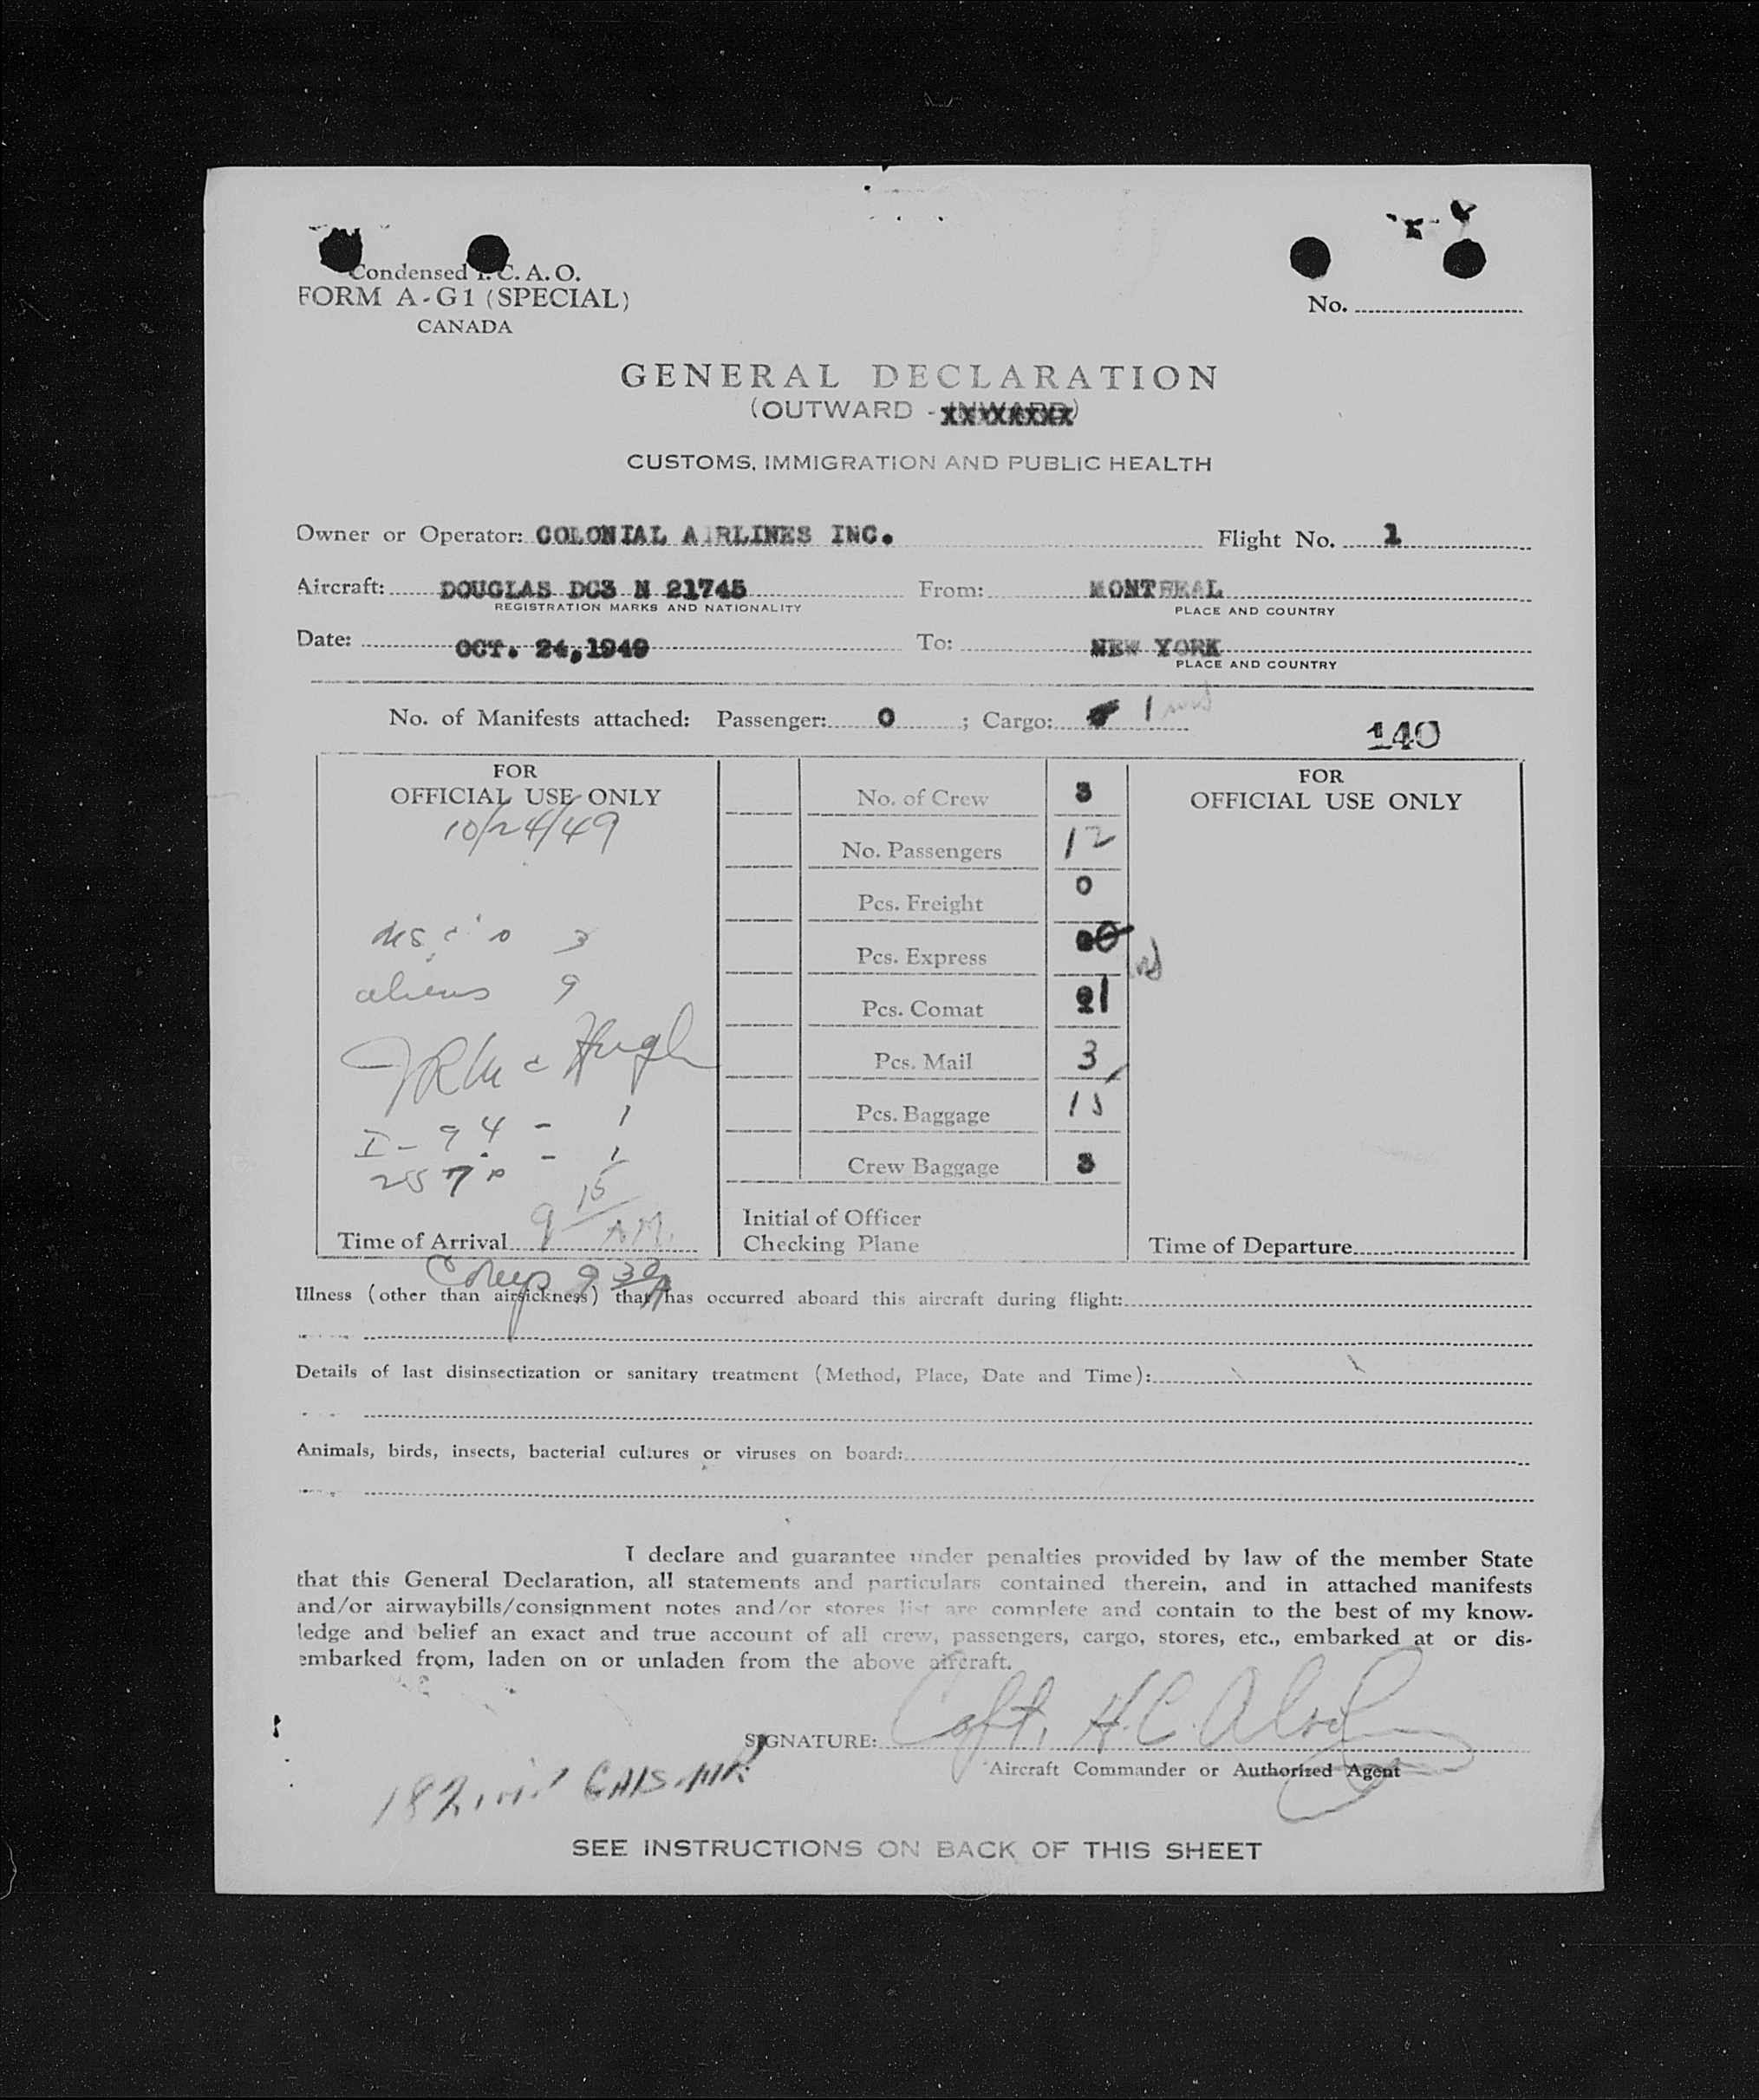 Condensed I. C. A. O.
FORM A-G1 (SPECIAL)
CANADA
No.
GENERAL DECLARATION
(OUTWARD - INWARD)
CUSTOMS, IMMIGRATION AND PUBLIC HEALTH
Owner or Operator: COLONIAL AIRLINES INC. Flight No. 1
Aircraft: DOUGLAS DC3 N 21745 From: MONTREAL
REGISTRATION MARKS AND NATIONALITY PLACE AND COUNTRY
Date: OCT. 24,1949 To: NEW YORK
PLACE AND COUNTRY
No. of Manifests attached: Passenger: 0 ; Cargo: 1
140
FOR
OFFICIAL USE ONLY
10/24/49
3
aliens 9
I-94 - 1
- 1
Time of Arrival 9 15 A.M.
No. of Crew 3
No. Passengers 12
Pcs. Freight 0
Pcs. Express
Pcs. Comat
Pcs. Mail 3
Pcs. Baggage 15
Crew Baggage 3
Initial of Officer
Checking Plane
FOR
OFFICIAL USE ONLY
Time of Departure
9 30
Illness (other than airsickness) that has occurred aboard this aircraft during flight:
Details of last disinsectization or sanitary treatment (Method, Place, Date and Time):
Animals, birds, insects, bacterial cultures or viruses on board:
I declare and guarantee under penalties provided by law of the member State
that this General Declaration, all statements and particulars contained therein, and in attached manifests
and/or airwaybills/consignment notes and/or stores list are complete and contain to the best of my know-
ledge and belief an exact and true account of all crew, passengers, cargo, stores, etc., embarked at or dis-
embarked from, laden on or unladen from the above aircraft.
SIGNATURE: Capt. H.C.
Aircraft Commander or Authorized Agent
SEE INSTRUCTIONS ON BACK OF THIS SHEET